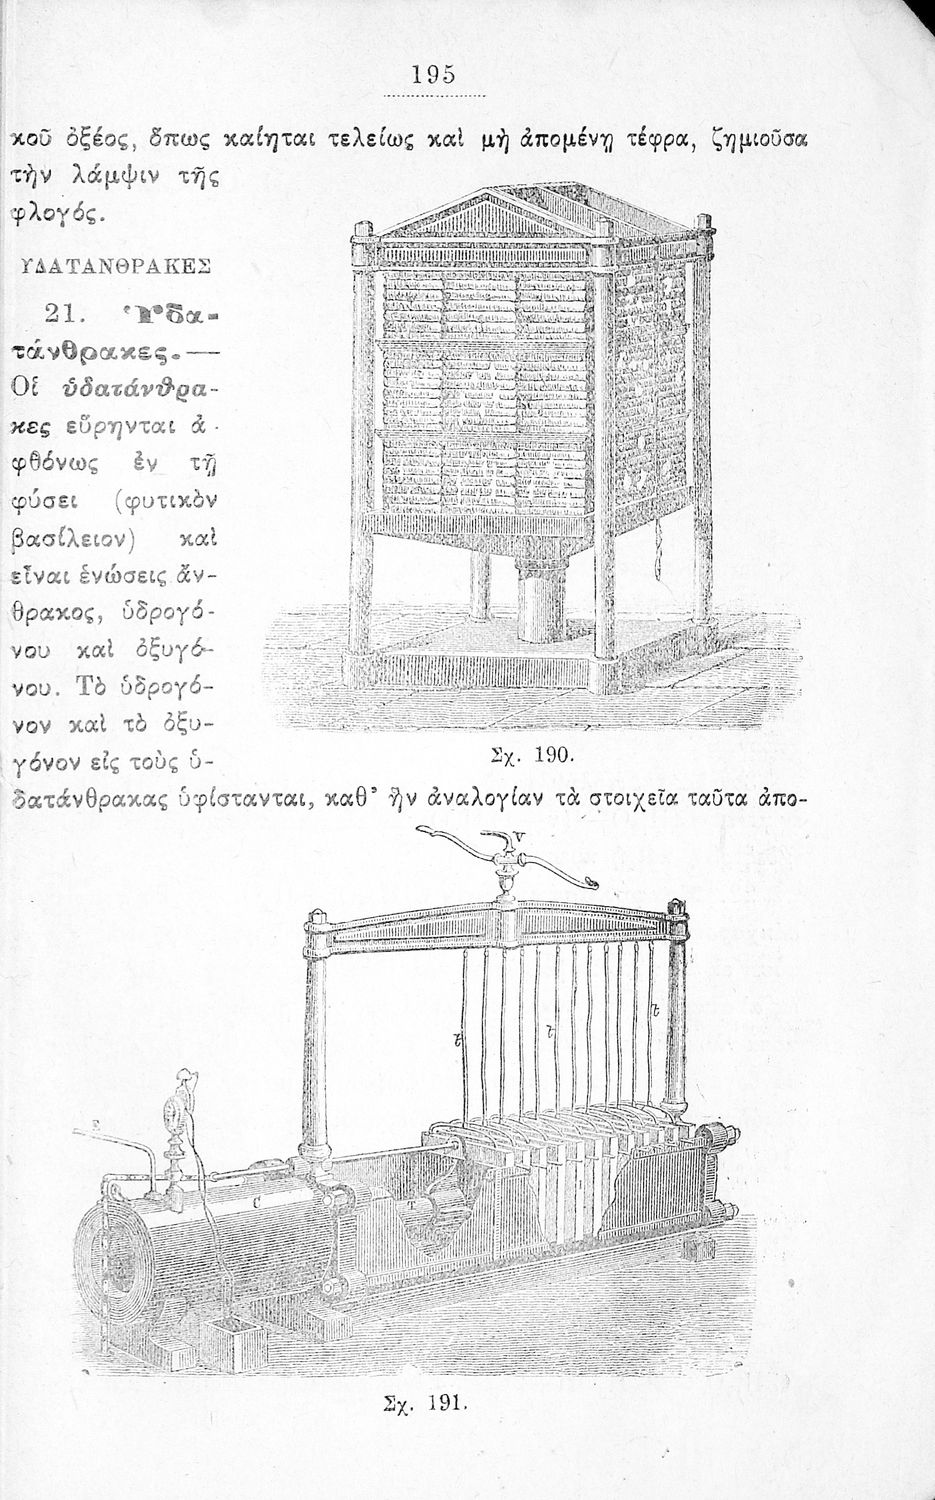 195
κοῦ ὀξέος, ὅπως καίηται τελείως καὶ μὴ ἀπομένῃ τέφρα, ζημιοῦσα
τὴν λάμψιν τῆς
φλογός.
ΥΔΑΤΑΝΘΡΑΚΕΣ
21. Ὑδα-
τάνθρακες.—
Οἱ ὑδατάνθρα-
κες εὕρηνται ἀ-
φθόνως ἐν τῇ
φύσει (φυτικὸν
βασίλειον) καὶ
εἶναι ἑνώσεις ἄν-
θρακος, ὑδρογό-
νου καὶ ὀξυγό-
νου. Τὸ ὑδρογό-
νον καὶ τὸ ὀξυ-
γόνον εἰς τοὺς ὑ-
Σχ. 190.
δατάνθρακας ὑφίστανται, καθ’ ἣν ἀναλογίαν τὰ στοιχεῖα ταῦτα ἀπο-
V
t
t
t
C
T
Σχ. 191.